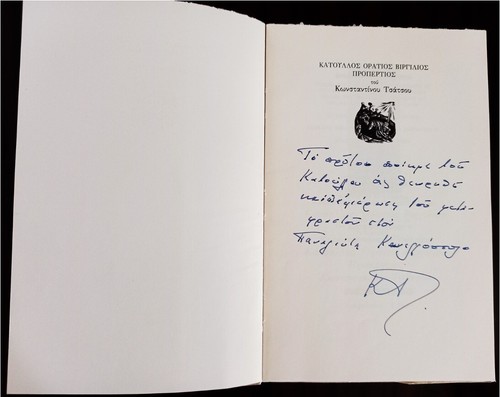 ΚΑΤΟΥΛΛΟΣ ΟΡΑΤΙΟΣ ΒΙΡΓΙΛΙΟΣ
ΠΡΟΠΕΡΤΙΟΣ
τοῦ
Κωνσταντίνου Τσάτσου
Τὸ πρῶτο ποίημα τοῦ
Κατούλλου ἂς θεωρηθῆ
καὶ ἀφιέρωση τοῦ μετα-
φραστοῦ στὸν
Παναγιώτη Κανελλόπουλο